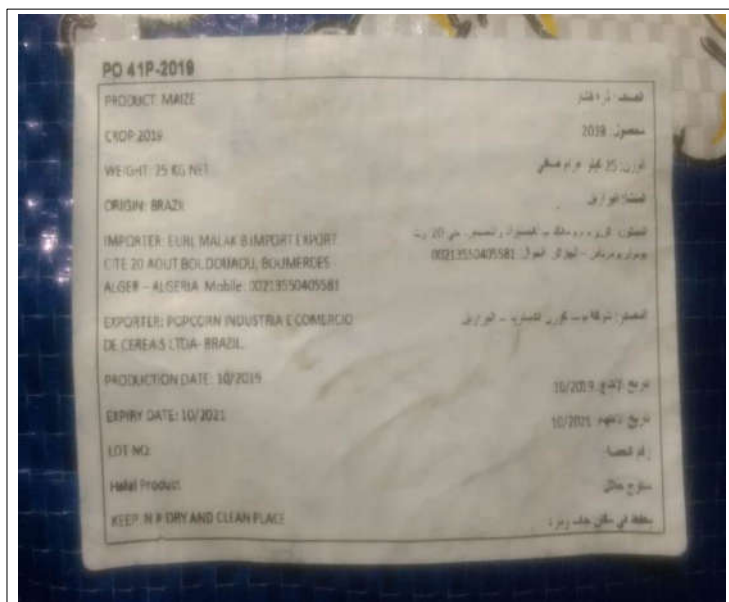 PO 41P-2019
PRODUCT: MAIZE
CROP 2019
WEIGHT: 25 KG NET
ORIGIN: BRAZIL
IMPORTER: EURL MALAK B IMPORT EXPORT
CITE 20 AOUT BOUDOUAOU, BOUMERDES
ALGER – ALGERIA Mobile: 00213550405581
EXPORTER: POPCORN INDUSTRIA E COMERCIO
DE CEREAIS LTDA- BRAZIL.
PRODUCTION DATE: 10/2019
EXPIRY DATE: 10/2021
LOT NO:
Halal Product
KEEP IN A DRY AND CLEAN PLACE
محصول: 2019
الوزن: 25 كيلو غرام صافي
المنشأ: البرازيل
20
الجزائر الجوال: 00213550405581
البرازيل
تاريخ الإنتاج: 10/2019
10/2021
منتوج حلال
يحفظ في مكان جاف